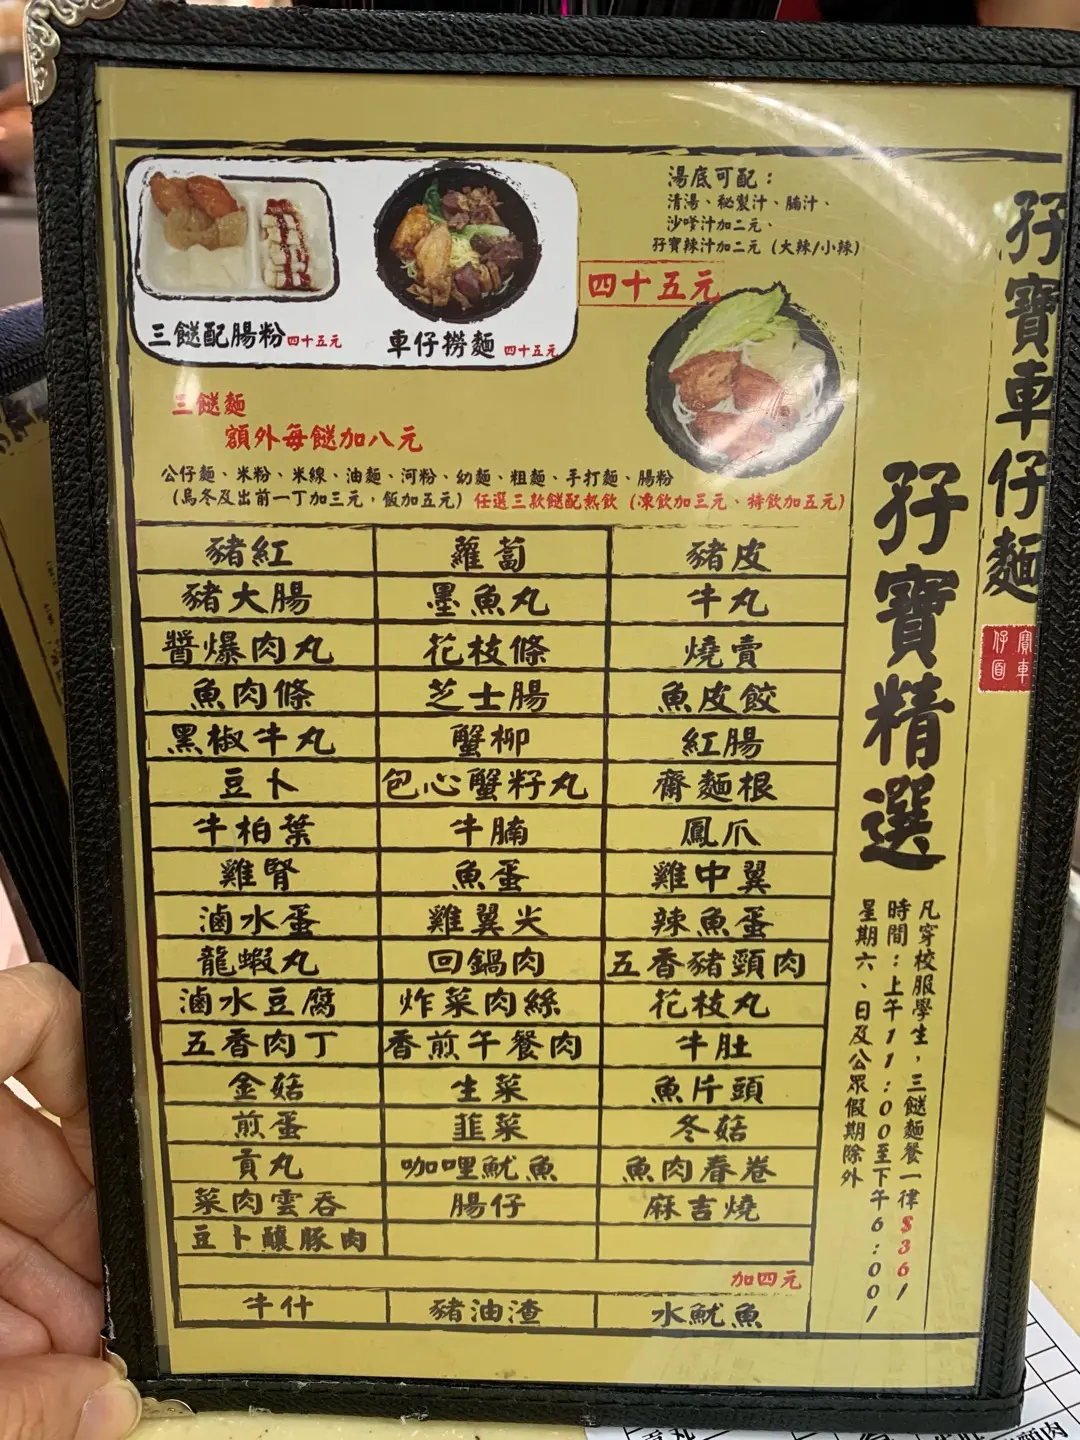 孖寶車仔麵
孖寶精選
三餸配腸粉 四十五元
車仔撈麵 四十五元
湯底可配：
清湯、秘製汁、腩汁、
沙嗲汁加二元、
孖寶辣汁加二元（大辣/小辣）
四十五元
三餸麵
額外每餸加八元
公仔麵、米粉、米線、油麵、河粉、幼麵、粗麵、手打麵、腸粉
（烏冬及出前一丁加三元，飯加五元）任選三款餸配熱飲（凍飲加三元、特飲加五元）
豬紅 蘿蔔 豬皮
豬大腸 墨魚丸 牛丸
醬爆肉丸 花枝條 燒賣
魚肉條 芝士腸 魚皮餃
黑椒牛丸 蟹柳 紅腸
豆卜 包心蟹籽丸 齋麵根
牛柏葉 牛腩 鳳爪
雞腎 魚蛋 雞中翼
滷水蛋 雞翼尖 辣魚蛋
龍蝦丸 回鍋肉 五香豬頸肉
滷水豆腐 炸菜肉絲 花枝丸
五香肉丁 香煎午餐肉 牛肚
金菇 生菜 魚片頭
煎蛋 韮菜 冬菇
貢丸 咖哩魷魚 魚肉春卷
菜肉雲吞 腸仔 麻吉燒
豆卜釀豚肉
加四元
牛什 豬油渣 水魷魚
凡穿校服學生，三餸麵餐一律$36/
時間：上午11:00至下午6:00/
星期六、日及公眾假期除外